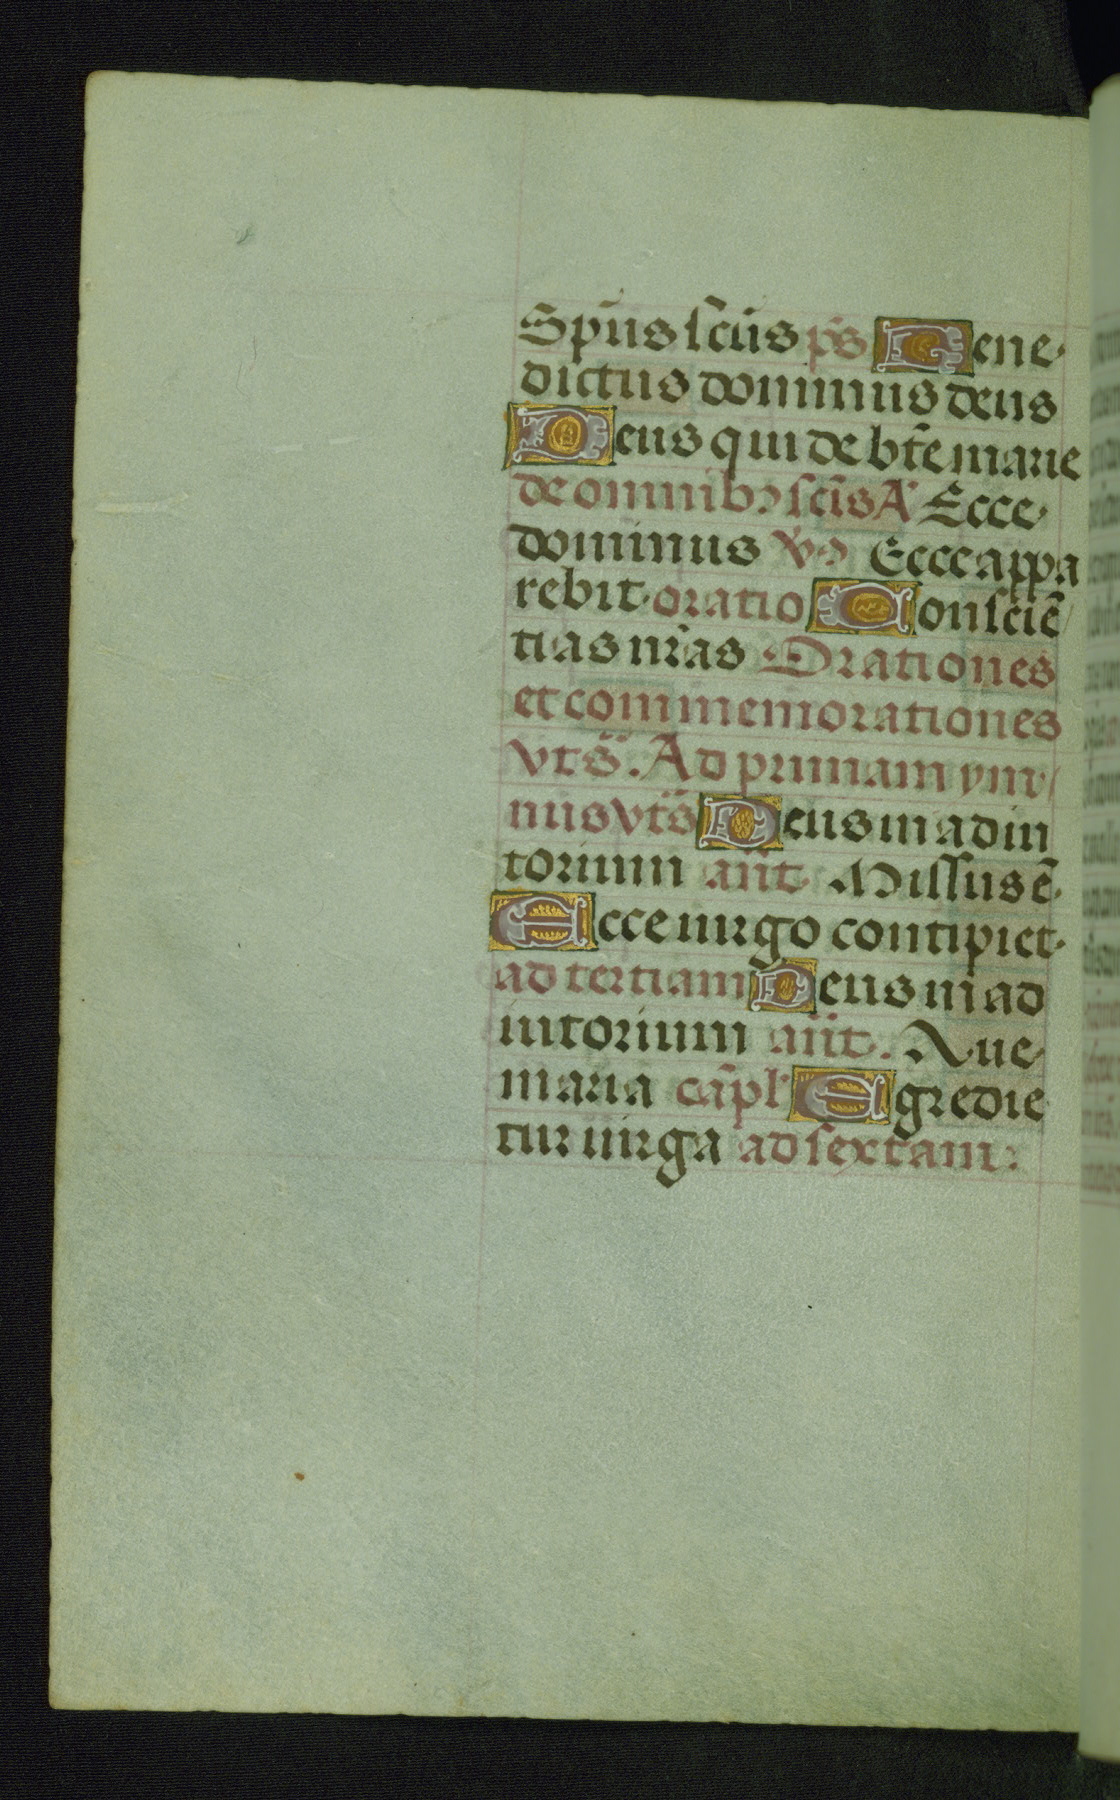 Spũs sc̃us ps̃ Bene
dictus dominus deus
Deus qui de bt̃e marie
de omnibꝰ sc̃is A Ecce
dominus V̊ Ecce appa
rebit oratio Conscie᷑
tias nr̃as Orationes
et commemorationes
vts̃. Ad primam ym
nus vts̃ Deus in adiu
torium an̄t Missus ē
Ecce uirgo concipiet
ad tertiam Deus in ad
iutorium an̄t. Aue
maria cap̃l Egredie
tur uirga ad sextam: